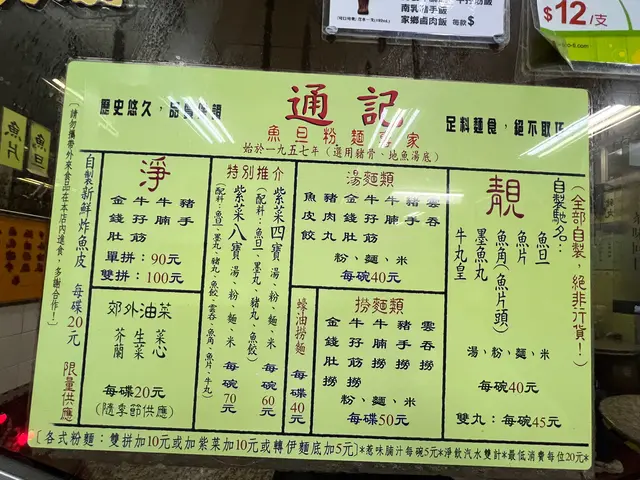 南乳豬手飯
家鄉鹵肉飯 每款$
$12/支
魚旦
魚片
通記
魚旦粉麵專家
始於一九五七年(選用豬骨、地魚湯底)
歷史悠久,品質
足料麵食,絕不取巧
[請勿攜帶外來食品在本店內進食,多謝合作!]
自製新鮮炸魚皮 每碟20元
限量供應
淨
豬手
牛腩
牛孖筋
金錢肚
單拼:90元
雙拼:100元
郊外油菜
菜心
生菜
芥蘭
每碟20元
(隨季節供應)
特別推介
紫菜四寶湯、粉、麵、米 每碗60元
(配料:魚旦、墨丸、豬丸、魚餃)
紫菜八寶湯、粉、麵、米 每碗70元
(配料:魚旦、墨丸、豬丸、魚餃、雲吞、魚角、魚片、牛丸)
蠔油撈麵 每碟40元
湯麵類
雲吞
豬手
牛腩
牛孖筋
金錢肚
豬肉丸
魚皮餃
粉、麵、米
每碗40元
撈麵類
雲吞撈
豬手撈
牛腩撈
牛孖筋撈
金錢肚撈
粉、麵、米
每碟50元
(全部自製,絕非行貨!)
自製馳名
靚
魚旦
魚片
魚角(魚片頭)
墨魚丸
牛丸皇
湯、粉、麵、米
每碗40元
雙丸:每碗45元
[各式粉麵:雙拼加10元或加紫菜加10元或轉伊麵底加5元]*惹味腩汁每碗5元*淨飲汽水雙計*最低消費每位20元*